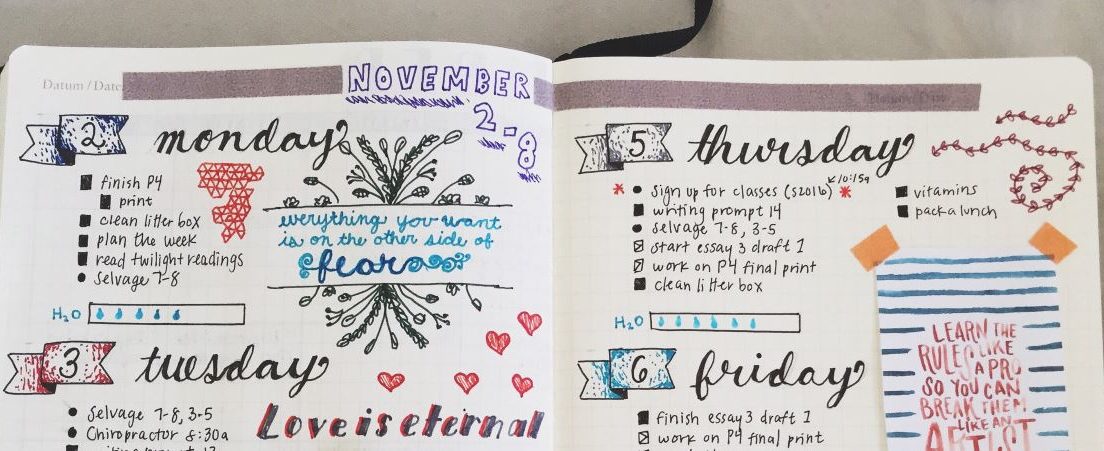 Datum / Date:
NOVEMBER
2-8
2 monday
finish P4
print
clean litter box
plan the week
read twilight readings
Selvage 7-8
everything you want
is on the other side of
fear
H2O
3 tuesday
Selvage 7-8, 3-5
Chiropractor 8:30a
Love is eternal
5 thursday
10:15a
Sign up for classes (S2016)
writing prompt 14
selvage 7-8, 3-5
start essay 3 draft 1
work on P4 final print
clean litter box
vitamins
pack a lunch
H2O
LEARN THE
RULES LIKE
A PRO
SO YOU CAN
BREAK THEM
LIKE AN
ARTIST
6 friday
finish essay 3 draft 1
work on P4 final print